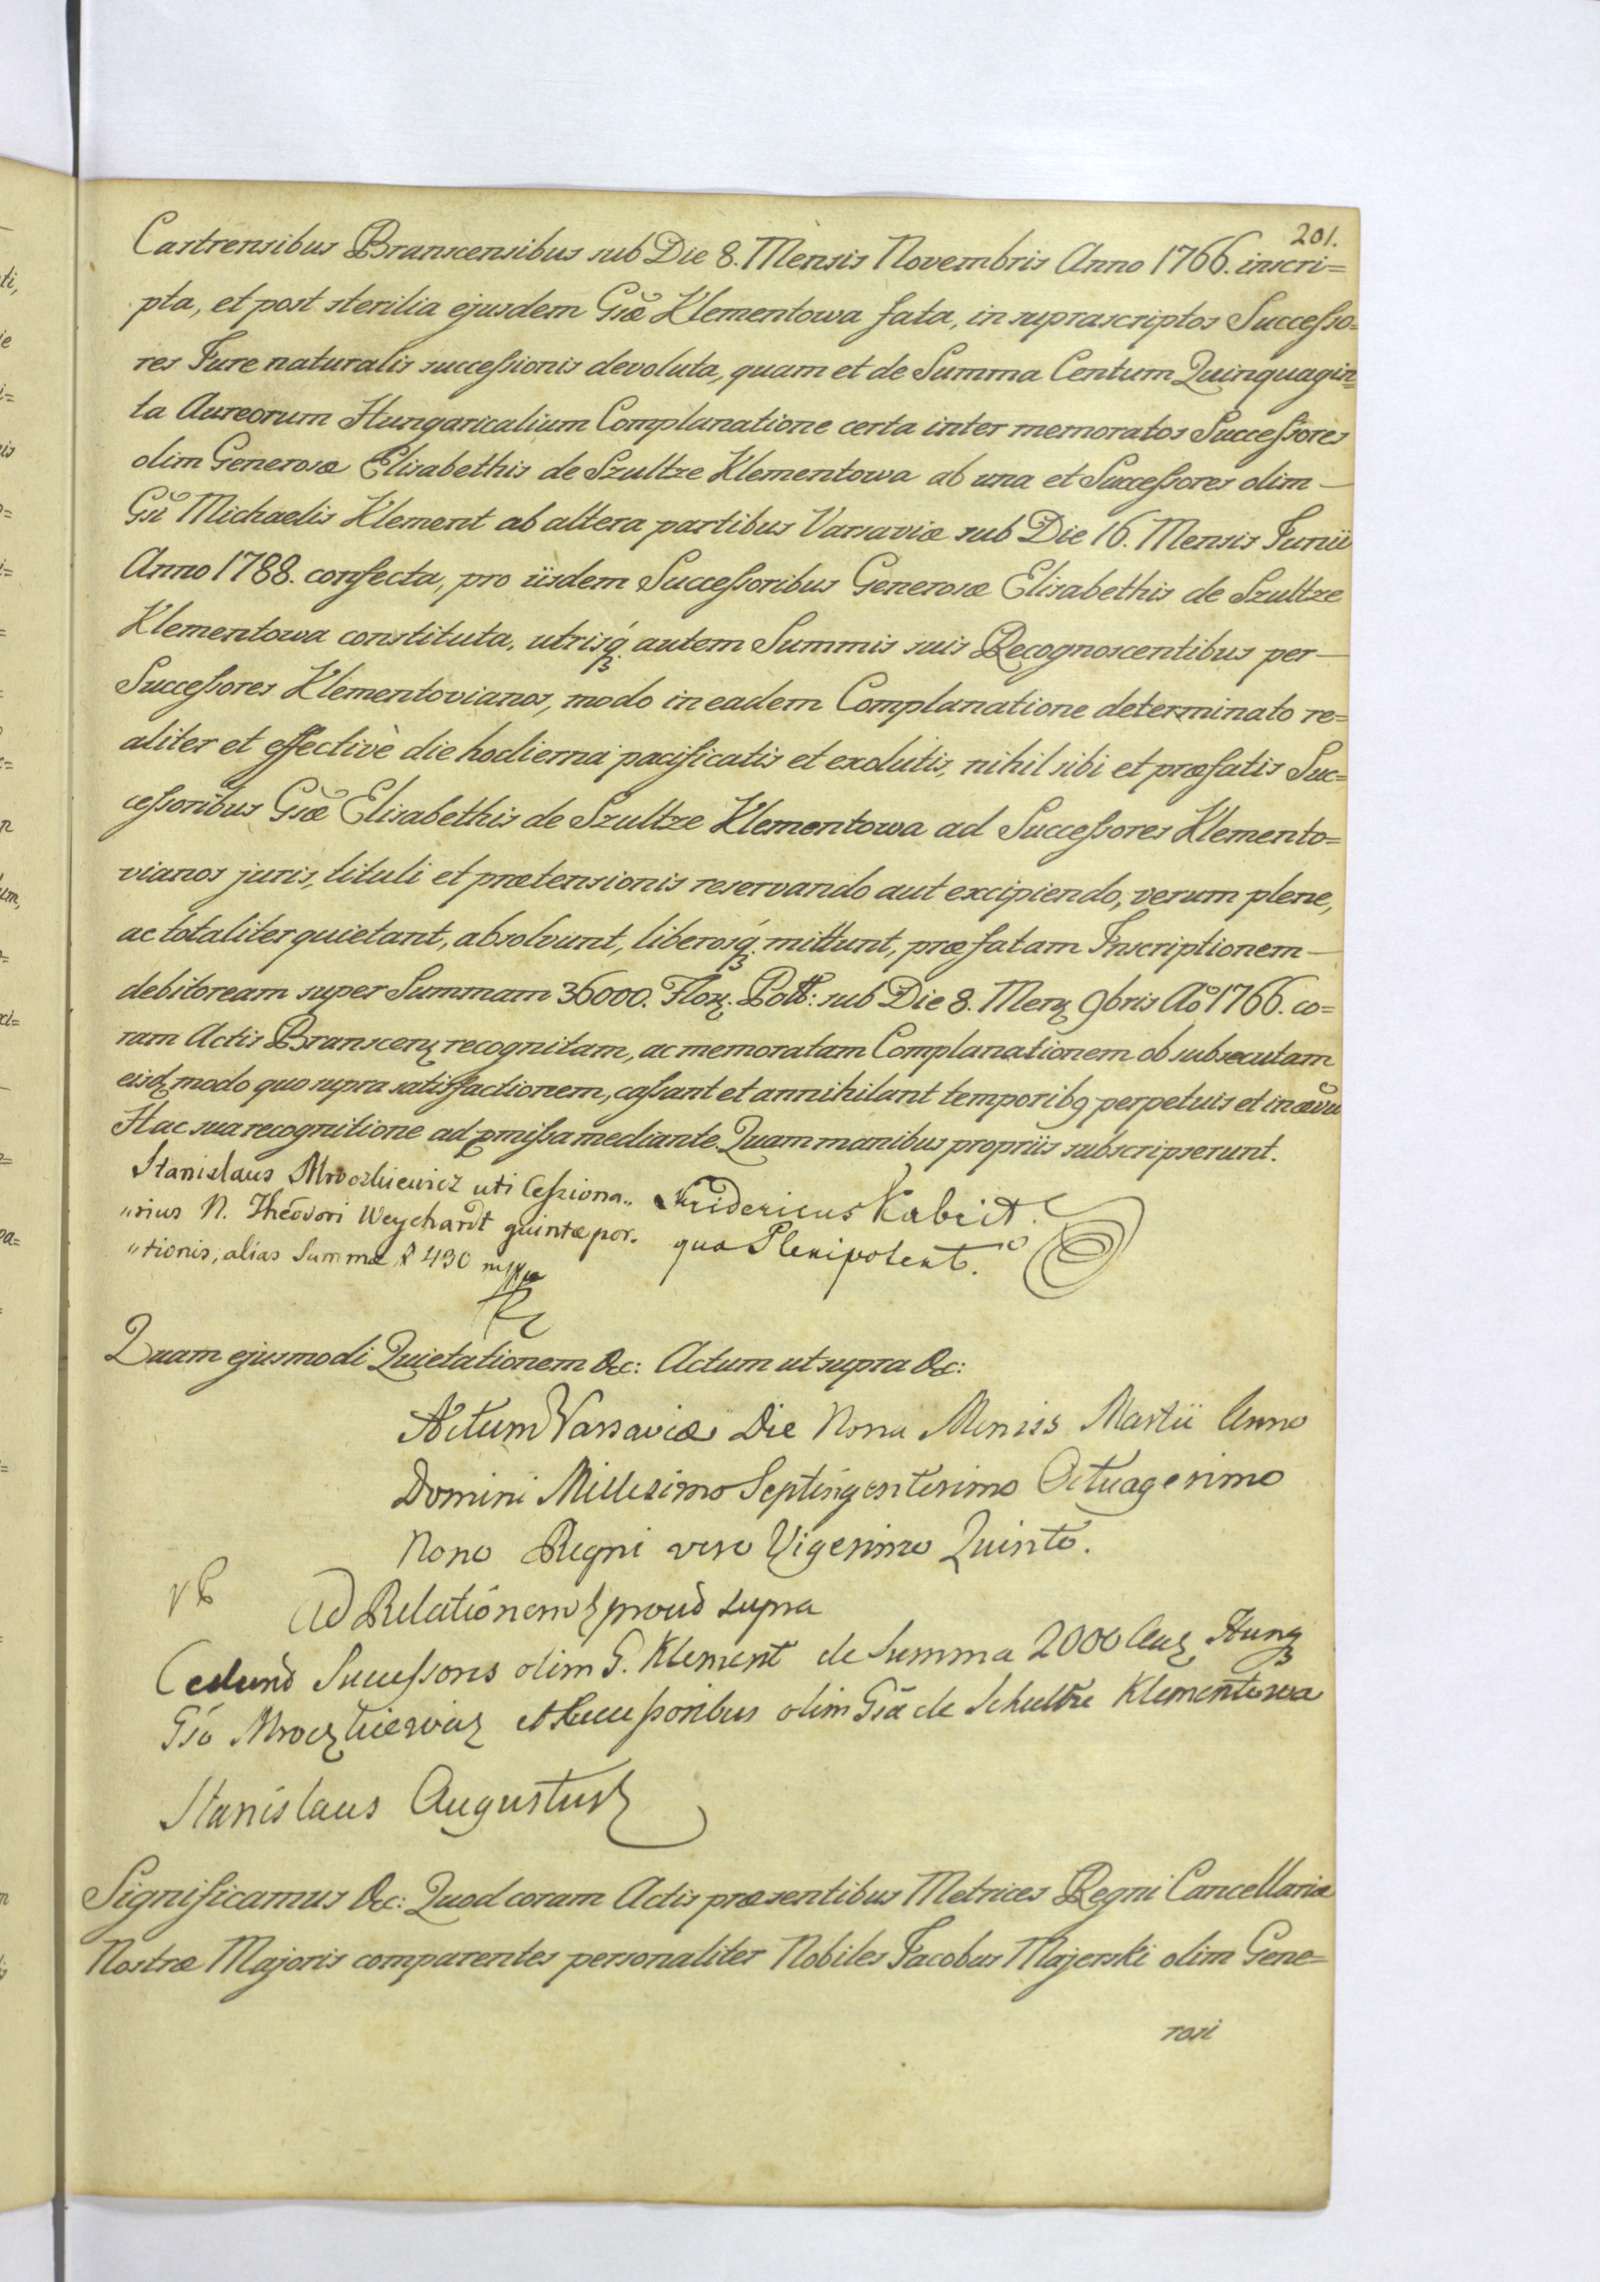 201.
Castrensibus Branscensibus sub Die 8. Mensis Novembris Anno 1766. inscri=
pta, et post sterilia ejusdem Gsæ Klementowa fata, in suprascriptos Successo=
res Jure naturalis successionis devoluta, quam et de Summa Centum Quinquagin=
ta Aureorum Hungaricalium Complanatione certa inter memoratos Successores
olim Generosæ Elisabethis de Szultze Klementowa ab una et Successores olim —
Gsi Michaelis Klement ab altera partibus Varsaviæ sub Die 16. Mensis Junii
Anno 1788. confecta, pro iisdem Successoribus Generosæ Elisabethis de Szultze
Klementowa constituta, utrisq́ autem Summis suis Recognoscentibus per —
Successores Klementovianos, modo in eadem Complanatione determinato re=
aliter et effectivè die hodierna pacificatis et exolutis, nihil sibi et præfatis Suc=
cessoribus Gsæ Elisabethis de Szultze Klementowa ad Successores Klemento=
vianos juris, tituli et prætensionis reservando aut excipiendo, verum plene,
ac totaliter quietant, absolvunt, liberosq́ mittunt, præfatam Inscriptionem —
debitoream super Summam 36000. Flor. Poll: sub Die 8. Mens 9bris Aō 1766. co=
ram Actis Branscen recognitam, ac memoratam Complanationem ob subsecutam
eisd modo quo supra satisfactionem, cassant et annihilant temporib9 perpetuis et in ævu
Hac sua recognitione ad pmissa mediante. Quam manibus propriis subscripserunt.
Stanislaus Mroczkiewicz uti Cessiona„
„rius N. Theodori Weychardt quintæ por.
„tionis, alias Summæ # 430 mppa
Fridericus Kabrit.
qua Plenipotent.
Quam ejusmodi Quietationem &c: Actum ut supra &c:
Actum Varsaviæ Die Nona Mensis Martii Anno
Domini Millesimo Septingentesimo Octuagesimo
Nono Regni vero Vigesimo Quinto.
Ad Relationem prout supra
Cedunt Successores olim G. Klement de Summa 2000 Aur Hung
Gso Mroczkiewicz et Successoribus olim Gsæ de Schultze Klementowa
Stanislaus Augustus
Significamus &c: Quod coram Actis præsentibus Metrices Regni Cancellariæ
Nostræ Majoris comparentes personaliter Nobiles Jacobus Majerski olim Gene=
rosi